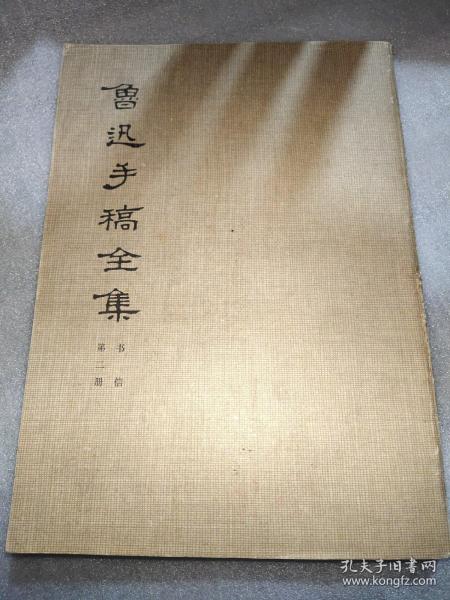 魯迅手稿全集
书信
第二册
孔夫子旧书网
www.kongfz.com